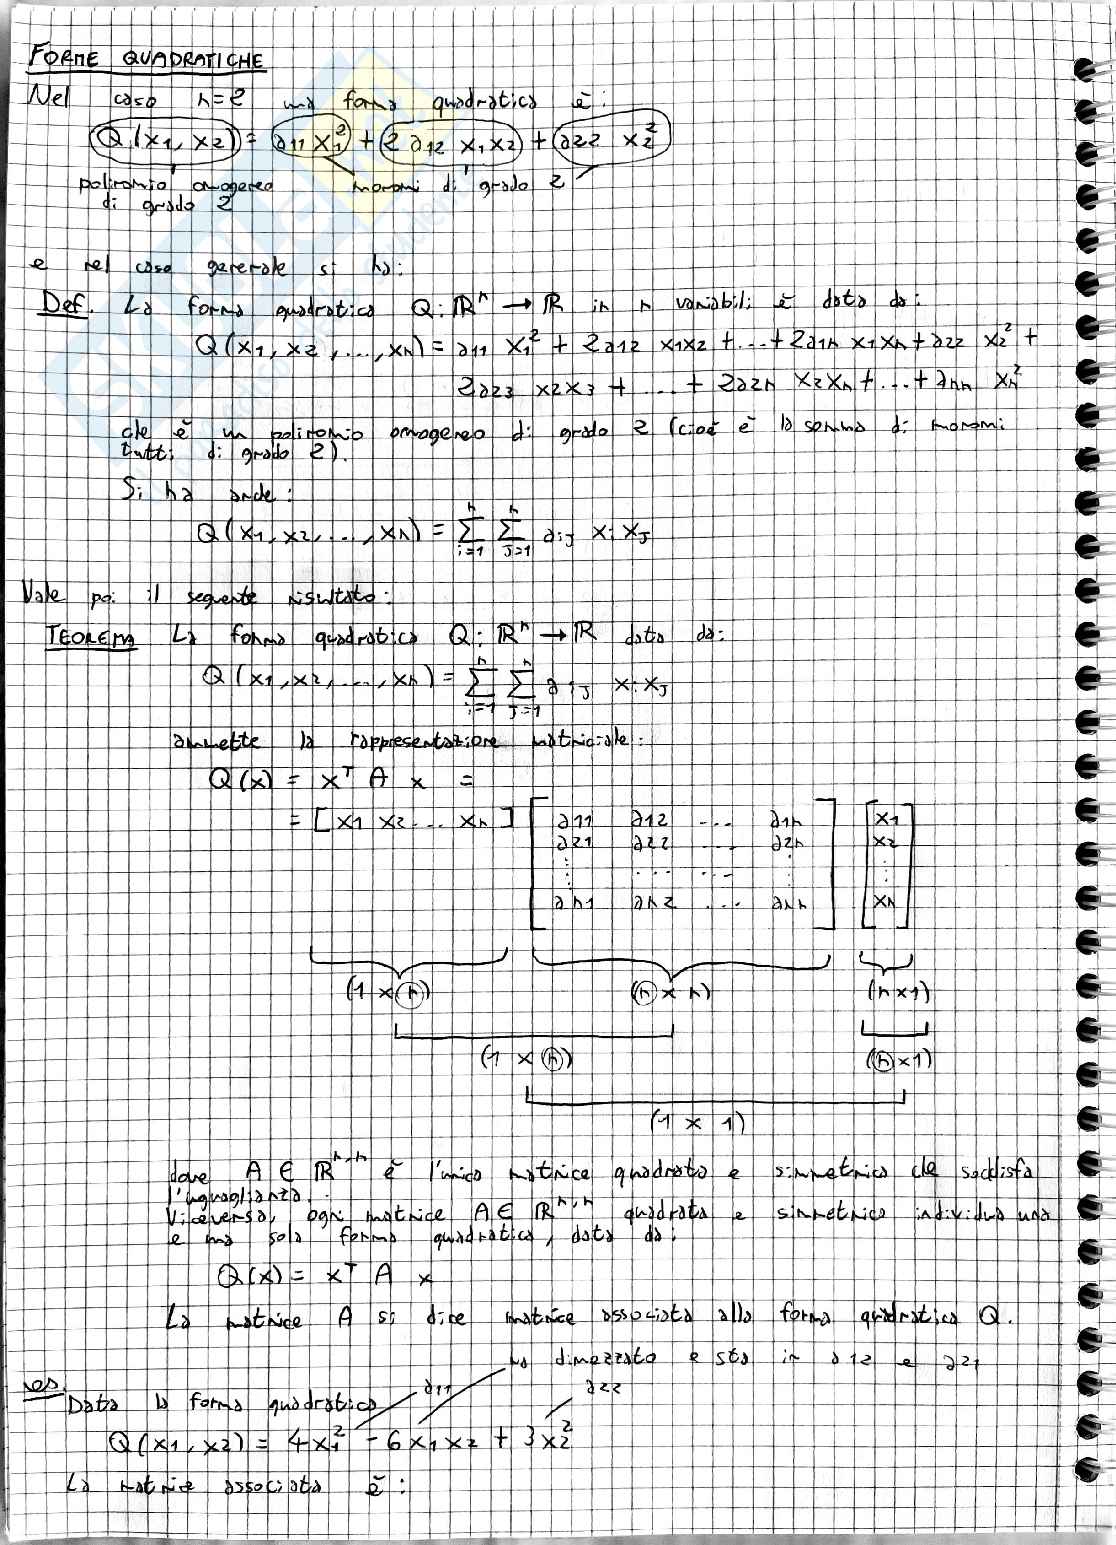 FORME QUADRATICHE
Nel caso n=2 una forma quadratica è:
Q(x1, x2) = a11 x1² + 2 a12 x1x2 + a22 x2²
polinomio omogeneo monomi di grado 2
di grado 2
e nel caso generale si ha:
Def. La forma quadratica Q: ℝⁿ → ℝ in n variabili è data da:
Q(x1, x2, ..., xn) = a11 x1² + 2a12 x1x2 + ... + 2a1n x1xn + a22 x2² +
2a23 x2x3 + ... + 2a2n x2xn + ... + ann xn²
che è un polinomio omogeneo di grado 2 (cioè è la somma di monomi
tutti di grado 2).
Si ha anche:
Q(x1, x2, ..., xn) = Σ_{i=1}^{n} Σ_{J=1}^{n} aiJ xi xJ
Vale poi il seguente risultato:
TEOREMA La forma quadratica Q: ℝⁿ → ℝ data da:
Q(x1, x2, ..., xn) = Σ_{i=1}^{n} Σ_{J=1}^{n} aiJ xi xJ
ammette la rappresentazione matriciale:
Q(x) = xᵀ A x =
= [x1 x2 ... xn] [a11 a12 ... a1n] [x1]
a21 a22 ... a2n x2
⋮ ... ... ⋮ ⋮
an1 an2 ... ann xn
(1 x n) (n x n) (n x 1)
(1 x n) (n x 1)
(1 x 1)
dove A ∈ ℝⁿ,ⁿ è l'unica matrice quadrata e simmetrica che soddisfa
l'uguaglianza.
Viceversa, ogni matrice A ∈ ℝⁿ,ⁿ quadrata e simmetrica individua una
e una sola forma quadratica, data da:
Q(x) = xᵀ A x
La matrice A si dice matrice associata alla forma quadratica Q.
va dimezzato e sta in a12 e a21
es.
a11 a22
Data la forma quadratica
Q(x1, x2) = 4x1² - 6x1x2 + 3x2²
La matrice associata è: